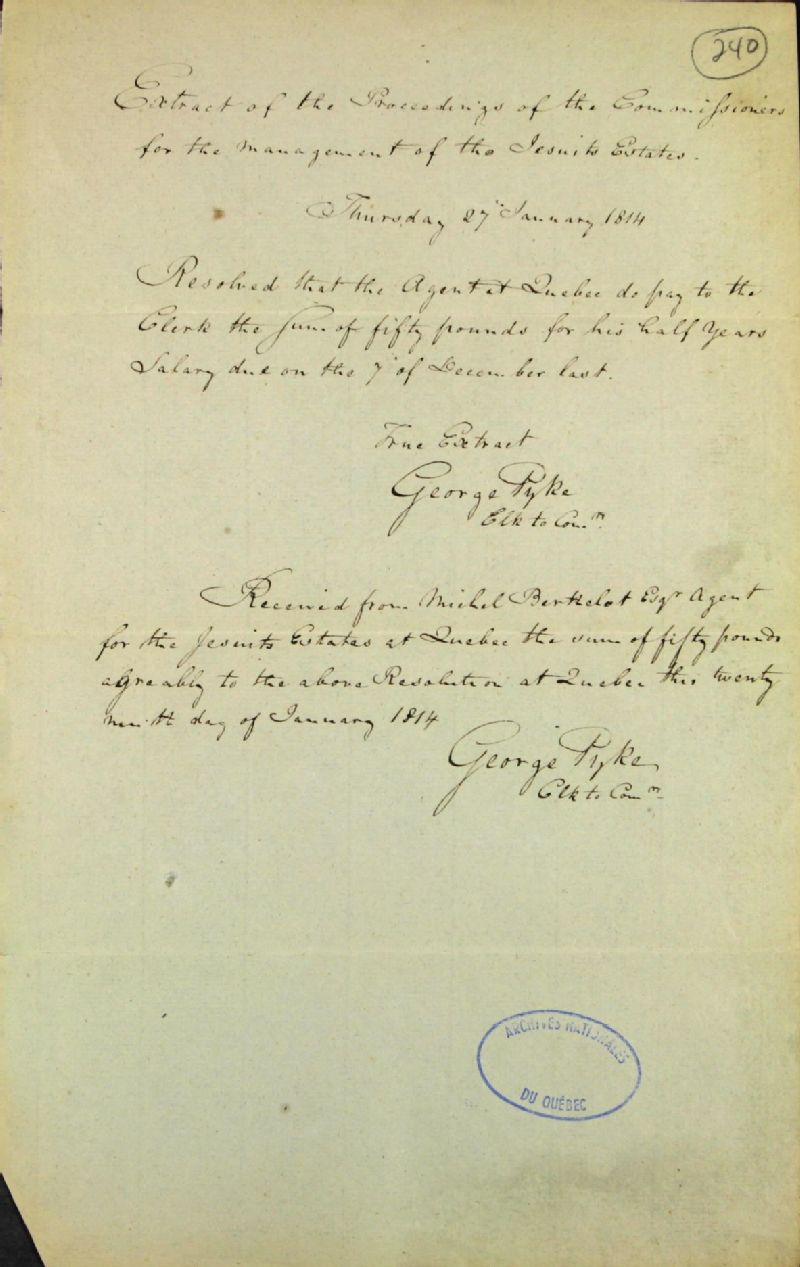 240
Extract of the Proceedings of the Commissioners
for the management of the Jesuits Estates.
Thursday 27 January 1814
Resolved that the Agent at Quebec do pay to the
Clerk the sum of fifty pounds for his half Years
Salary due on the 7 of December last.
True Extract
George Pyke
Clk to Com.rs
Received from Michel Berthelot Esqr Agent
for the Jesuits Estates at Quebec the sum of fifty pounds
agreably to the above Resolution at Quebec this twenty
ninth day of January 1814
George Pyke
Clk to Com.rs
ARCHIVES NATIONALES
DU QUÉBEC